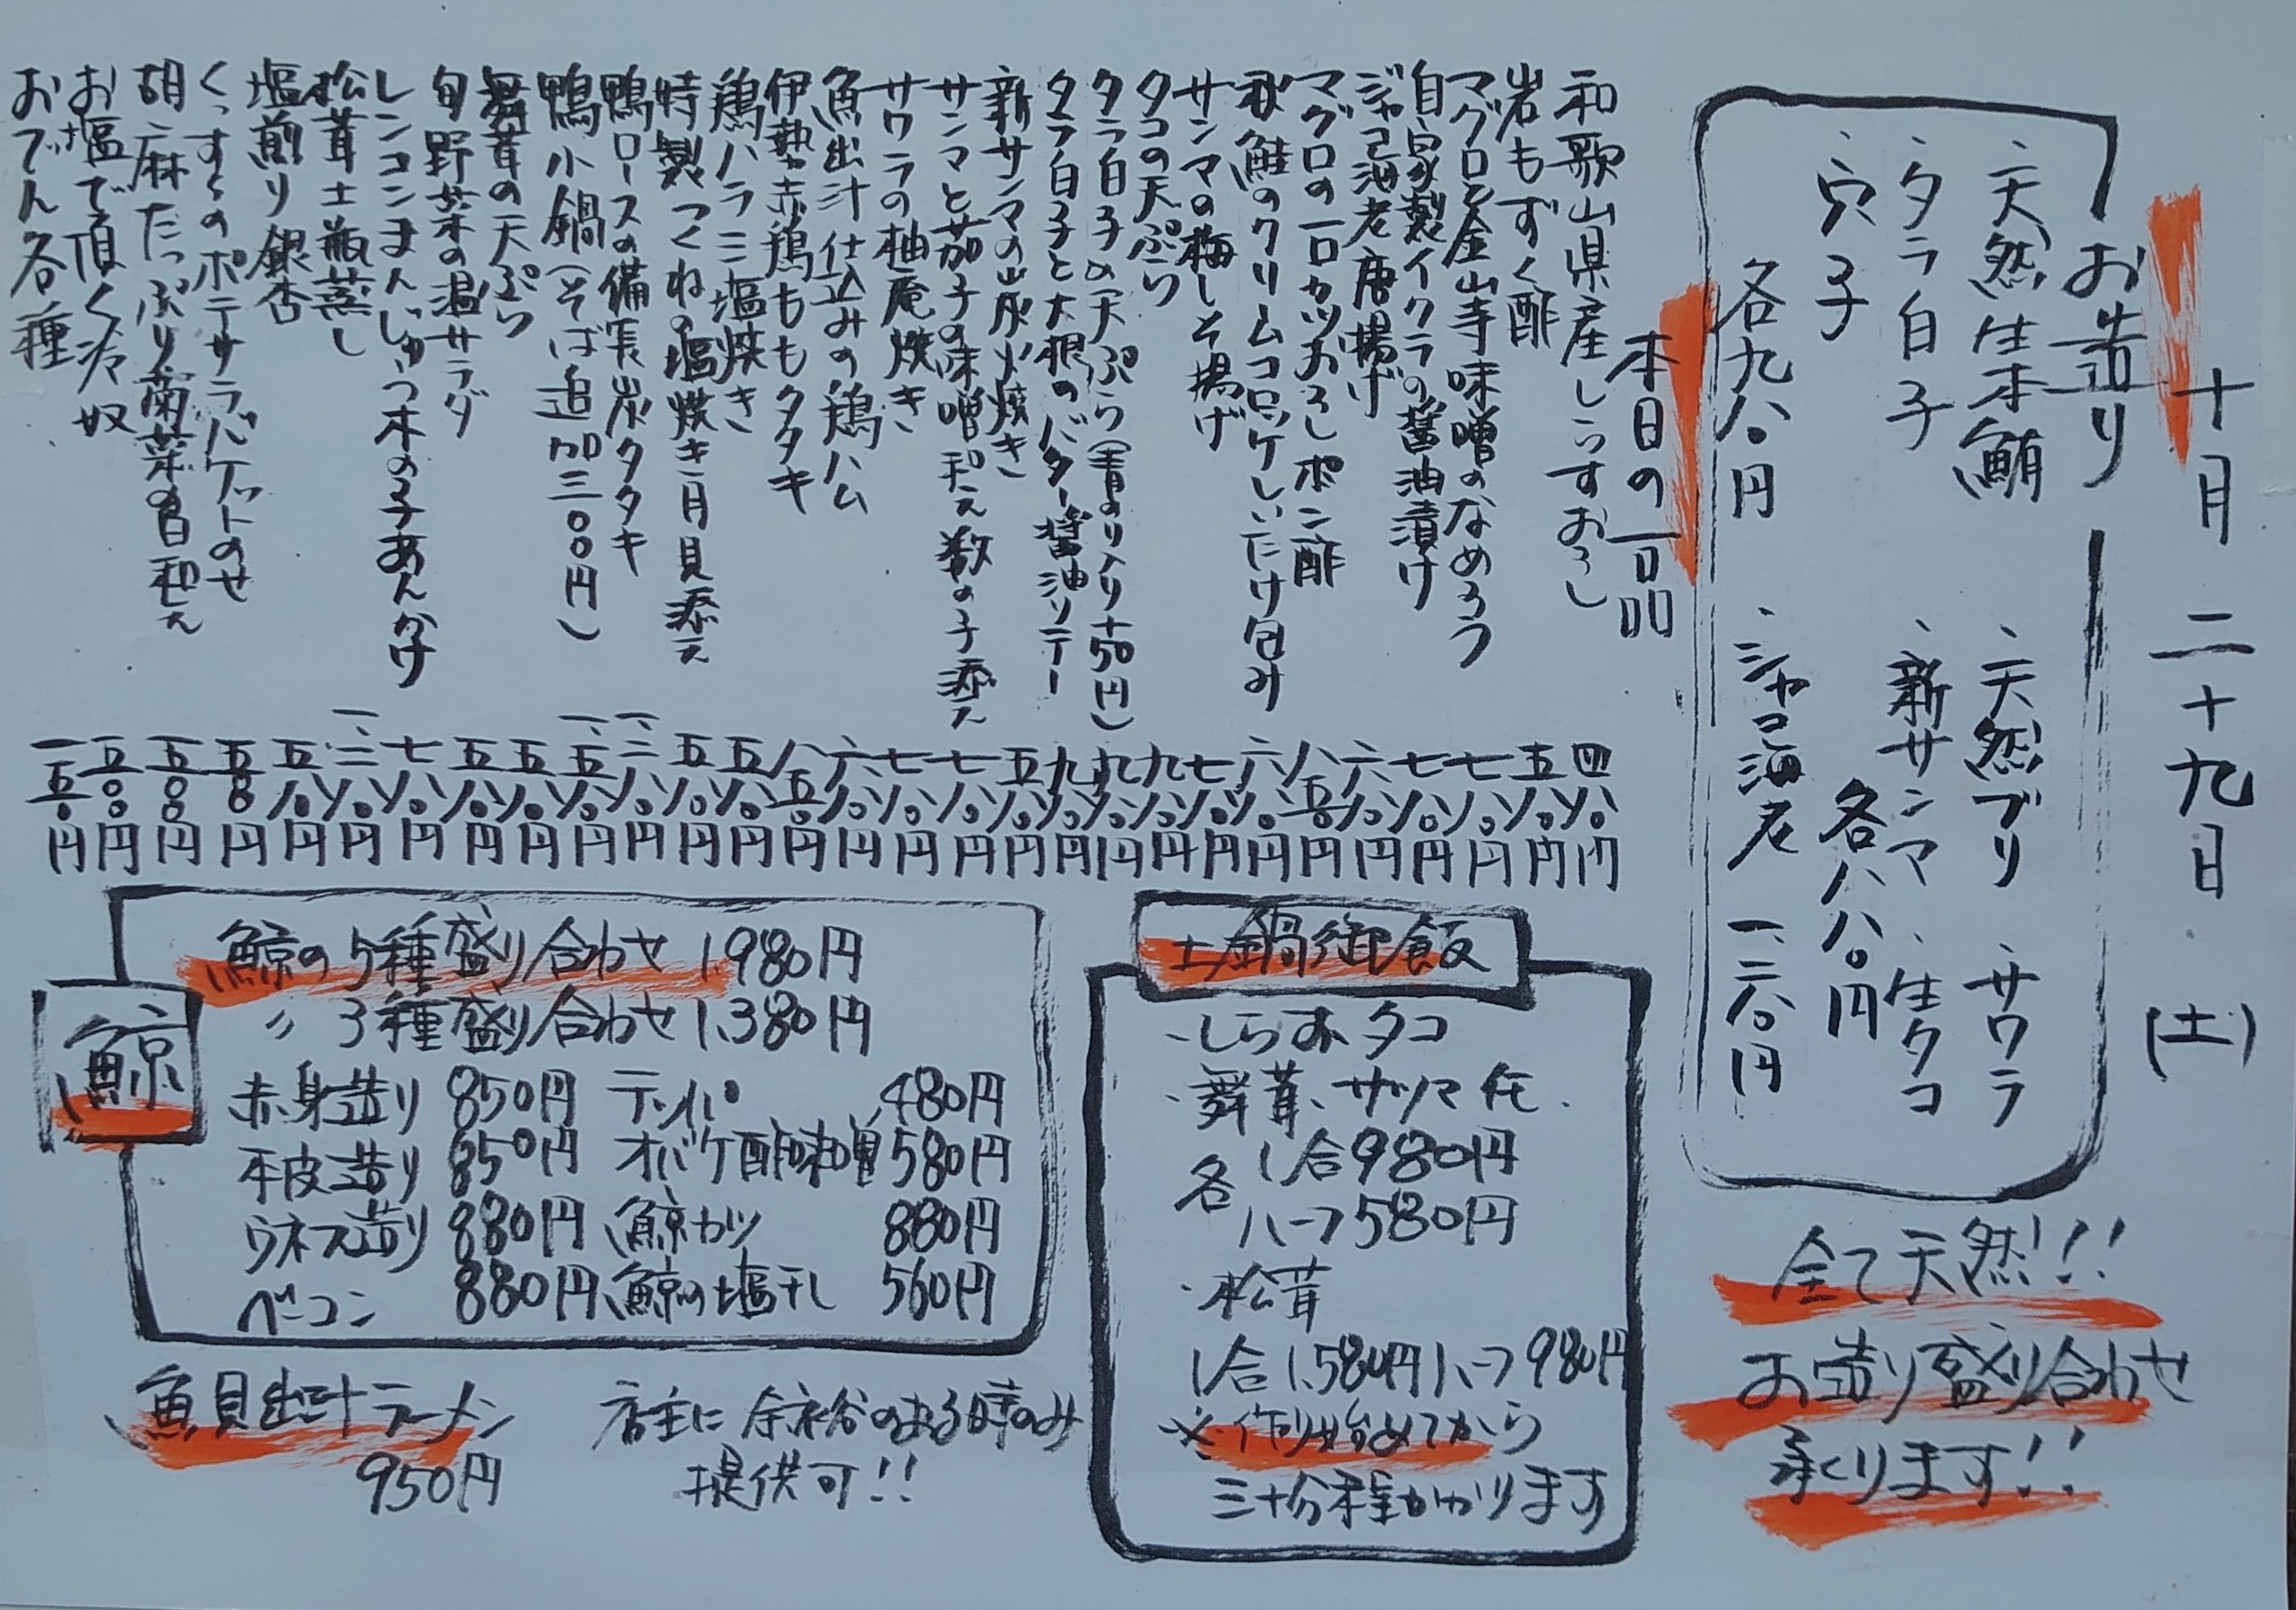 十月二十九日(土)
お造り
、天然生本鮪
、タラ白子
、穴子
各九八〇円
、天然ブリ、サワラ
、新サンマ、生タコ
各八八〇円
、シャコ海老 一、二八〇円
全て天然!!
お造り盛り合わせ
承ります!!
本日の一品
和歌山県産しらすおろし 四八〇円
岩もずく酢 五八〇円
マグロと金山寺味噌のなめろう 七八〇円
自家製イクラの醤油漬け 七八〇円
シャコ海老唐揚げ 六八〇円
マグロの一口カツおろしポン酢 八五〇円
秋鮭のクリームコロッケしいたけ包み 六八〇円
サンマの梅しそ揚げ 七八〇円
タコの天ぷら 九八〇円
タラ白子の天ぷら(青のり入り+50円) 九八〇円
タラ白子と大根のバター醤油ソテー 九八〇円
新サンマの炭火焼き 五八〇円
サンマと茄子の味噌和え 数の子添え 七八〇円
サワラの柚庵焼き 七八〇円
魚出汁仕込みの鶏ハム 六八〇円
伊勢赤鶏ももタタキ 八五〇円
鶏ハラミ塩焼き 五八〇円
特製つくねの塩焼き 月見添え 五八〇円
鴨ロースの備長炭タタキ 一、二八〇円
鴨小鍋(そば追加三〇〇円) 一、五八〇円
舞茸の天ぷら 五八〇円
旬野菜の温サラダ 五八〇円
レンコンまんじゅう木の子あんかけ 七八〇円
松茸土瓶蒸し 一、二八〇円
塩煎り銀杏 五八〇円
くっすくのポテサラバケットのせ 五八〇円
胡麻たっぷり菊菜の白和え 五〇〇円
お塩で頂く冷奴 五〇〇円
おでん各種 一五〇円
土鍋御飯
・しらす、タコ
・舞茸、サツマ芋
各 1合980円
ハーフ580円
・松茸
1合1,580円 ハーフ980円
※作り始めてから
三十分程かかります
鯨
鯨の5種盛り合わせ 1,980円
〃 3種盛り合わせ 1,380円
赤身造り 850円 テッパ 480円
本皮造り 850円 オバケ酢味噌 580円
ウネス造り 880円 鯨カツ 880円
ベーコン 880円 鯨の塩干し 560円
魚貝出汁ラーメン
950円
店主に余裕のある時のみ
提供可!!